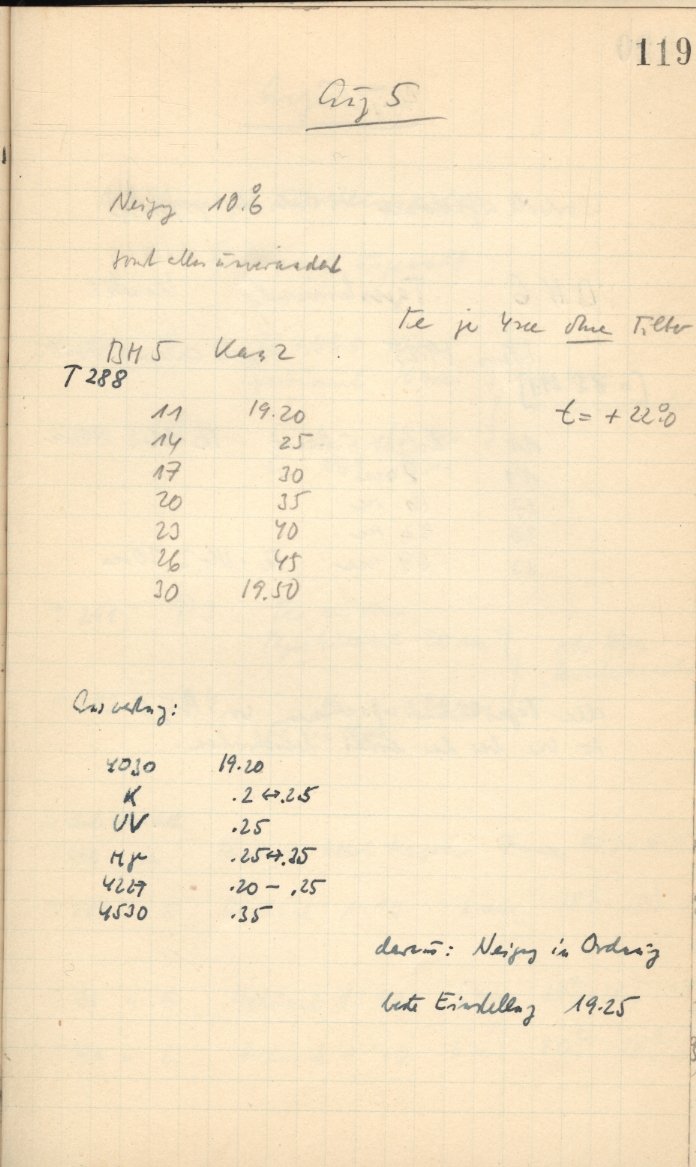 119
Aug 5
Neigg 10.°6
sonst alles unverändert
Fe je 4 sec ohne Filter
BH 5 Kam 2
T 288
t = + 22.°0
11 19.20
14 25
17 30
20 35
23 40
26 45
30 19.50
Auswertung:
4030 19.20
K .2 ↔ .25
UV .25
Hγ .25 ↔ .35
4227 .20 – .25
4530 .35
daraus: Neigg in Ordnung
beste Einstellung 19.25